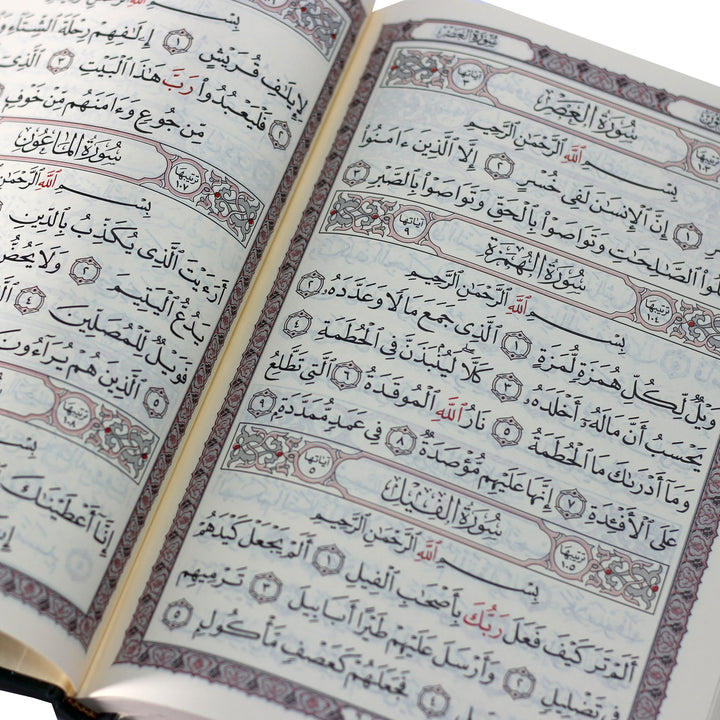 سُورَةُ العَصْرِ
ترتيبها ١٠٣ سُورَةُ العَصْرِ آياتها ٣
بِسْمِ ٱللَّهِ ٱلرَّحْمَٰنِ ٱلرَّحِيمِ
١ إِنَّ ٱلْإِنسَٰنَ لَفِى خُسْرٍ ٢ إِلَّا ٱلَّذِينَ ءَامَنُوا۟
ٱلصَّٰلِحَٰتِ وَتَوَاصَوْا۟ بِٱلْحَقِّ وَتَوَاصَوْا۟ بِٱلصَّبْرِ ٣
ترتيبها ١٠٤ سُورَةُ الهُمَزَةِ آياتها ٩
بِسْمِ ٱللَّهِ ٱلرَّحْمَٰنِ ٱلرَّحِيمِ
وَيْلٌ لِّكُلِّ هُمَزَةٍ لُّمَزَةٍ ١ ٱلَّذِى جَمَعَ مَالًا وَعَدَّدَهُۥ ٢
يَحْسَبُ أَنَّ مَالَهُۥٓ أَخْلَدَهُۥ ٣ كَلَّا ۖ لَيُنۢبَذَنَّ فِى ٱلْحُطَمَةِ ٤
وَمَآ أَدْرَىٰكَ مَا ٱلْحُطَمَةُ ٥ نَارُ ٱللَّهِ ٱلْمُوقَدَةُ ٦ ٱلَّتِى تَطَّلِعُ
عَلَى ٱلْأَفْـِٔدَةِ ٧ إِنَّهَا عَلَيْهِم مُّؤْصَدَةٌ ٨ فِى عَمَدٍ مُّمَدَّدَةٍۭ ٩
ترتيبها ١٠٥ سُورَةُ الفِيلِ آياتها ٥
بِسْمِ ٱللَّهِ ٱلرَّحْمَٰنِ ٱلرَّحِيمِ
أَلَمْ تَرَ كَيْفَ فَعَلَ رَبُّكَ بِأَصْحَٰبِ ٱلْفِيلِ ١ أَلَمْ يَجْعَلْ كَيْدَهُمْ
فِى تَضْلِيلٍ ٢ وَأَرْسَلَ عَلَيْهِمْ طَيْرًا أَبَابِيلَ ٣ تَرْمِيهِم
٤ فَجَعَلَهُمْ كَعَصْفٍ مَّأْكُولٍۭ ٥
لِإِيلَٰفِ قُرَيْشٍ ١ إِۦلَٰفِهِمْ رِحْلَةَ ٱلشِّتَآءِ
٢ فَلْيَعْبُدُوا۟ رَبَّ هَٰذَا ٱلْبَيْتِ ٣ ٱلَّذِىٓ
مِّن جُوعٍ وَءَامَنَهُم مِّنْ خَوْفٍۭ
ترتيبها ١٠٧ سُورَةُ المَاعُونِ
بِسْمِ ٱللَّهِ ٱلرَّحْمَٰنِ
أَرَءَيْتَ ٱلَّذِى يُكَذِّبُ بِٱلدِّينِ
يَدُعُّ ٱلْيَتِيمَ ٢ وَلَا يَحُضُّ
فَوَيْلٌ لِّلْمُصَلِّينَ ٤
٥ ٱلَّذِينَ هُمْ يُرَآءُونَ
ترتيبها ١٠٨
بِسْمِ
إِنَّآ أَعْطَيْنَٰكَ